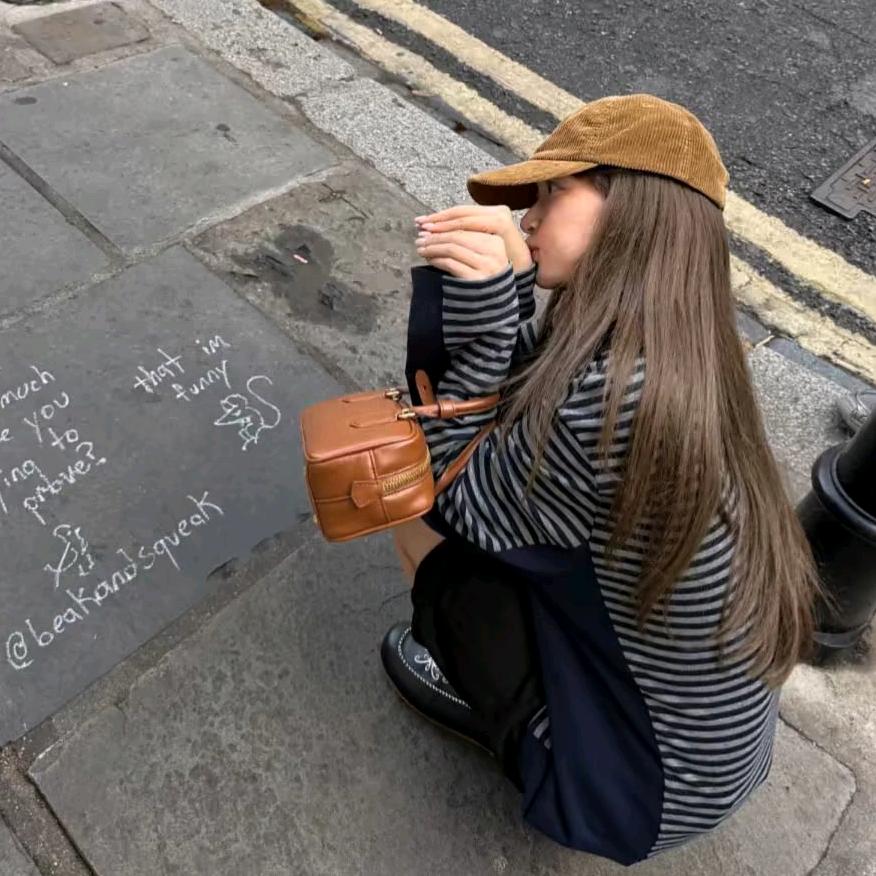 much
you
to
prove?
that im
funny
@beakandsqueak